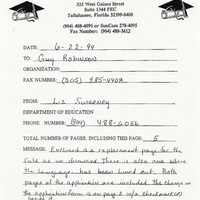 325 West Gaines Street
Suite 1344 FEC
Tallahassee, Florida 32399-0400
(904) 488-4095 or SunCom 278-4095
Fax Number: (904) 488-3612
DATE: 6-22-94
TO: Guy Robinson
ORGANIZATION:
FAX NUMBER: (305) 485-4408
FROM: Liz Sweeney
DEPARTMENT OF EDUCATION
PHONE NUMBER: (904) 488-6056
TOTAL NUMBER OF PAGES, INCLUDING THIS PAGE: 5
MESSAGE: Enclosed is a replacement page for the
rule as we discussed. There is also one where
the language has been lined out. Both
pages of the application are included. The change on
the application form is on page 2 w/a checkmark (✓)